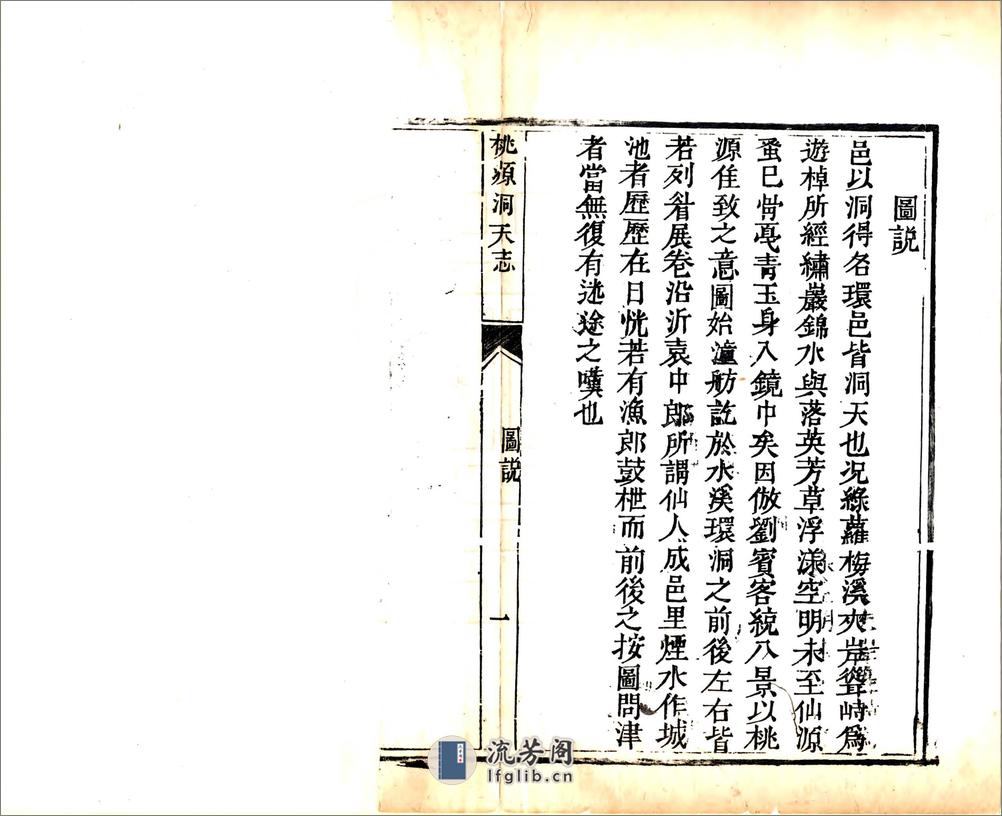 圖説
邑以洞得名環邑皆洞天也况綠蘿梅溪夾岸聳峙爲
遊棹所經繡巖錦水與落英芳草浮漾空明未至仙源
蚤已骨戞青玉身入鏡中矣因倣劉賓客統八景以桃
源佳致之意圖始潼舫訖於水溪環洞之前後左右皆
若列眉展卷沿泝袁中郎所謂仙人成邑里煙水作城
池者歷歷在目恍若有漁郎鼓枻而前後之按圖問津
者當無復有迷途之嘆也
桃源洞天志
圖説
一
流芳阁
lfglib.cn